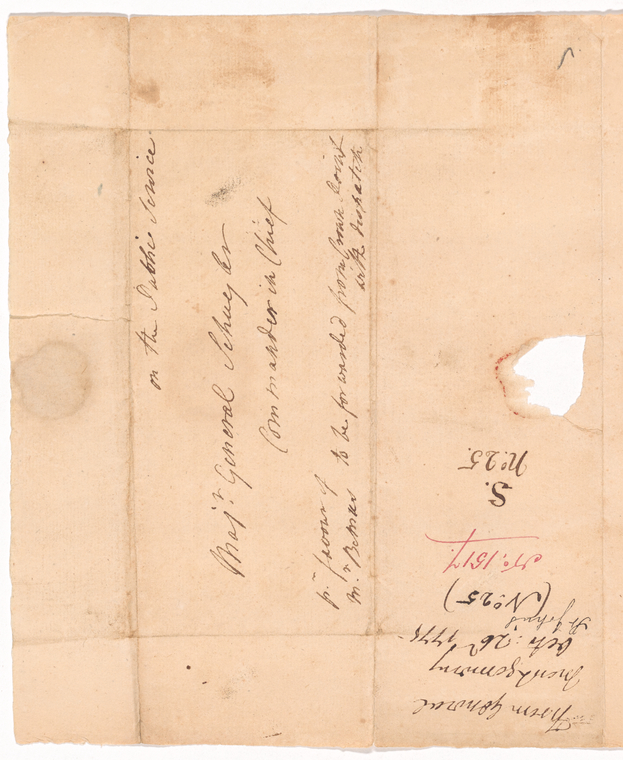 on the Public Service
Majr. General Schuyler
Commander in Chief
pr. favour of
Mr. to be forwarded from Crown Point
with dispatch
From General
Montgomery
Octr. 26th 1775
St. John's
(No. 25)
No. 1517.
S.
No. 25.